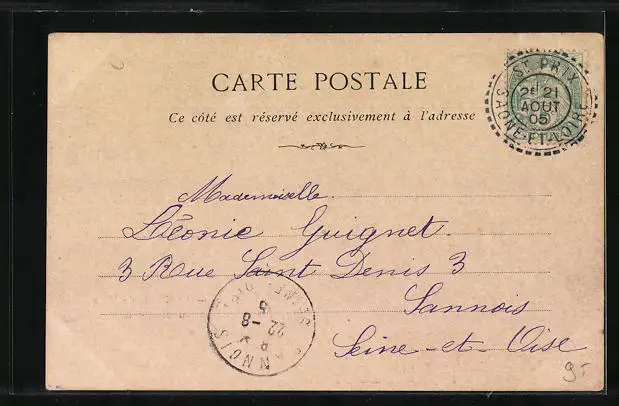 CARTE POSTALE
Ce côté est réservé exclusivement à l'adresse
ST PRIX
2E 21
AOUT
05
SAONE-ET-LOIRE
Mademoiselle
Léonie Guignet.
3 Rue Saint Denis 3
Sannois
Seine-et-Oise
SANNOIS
22-8
05